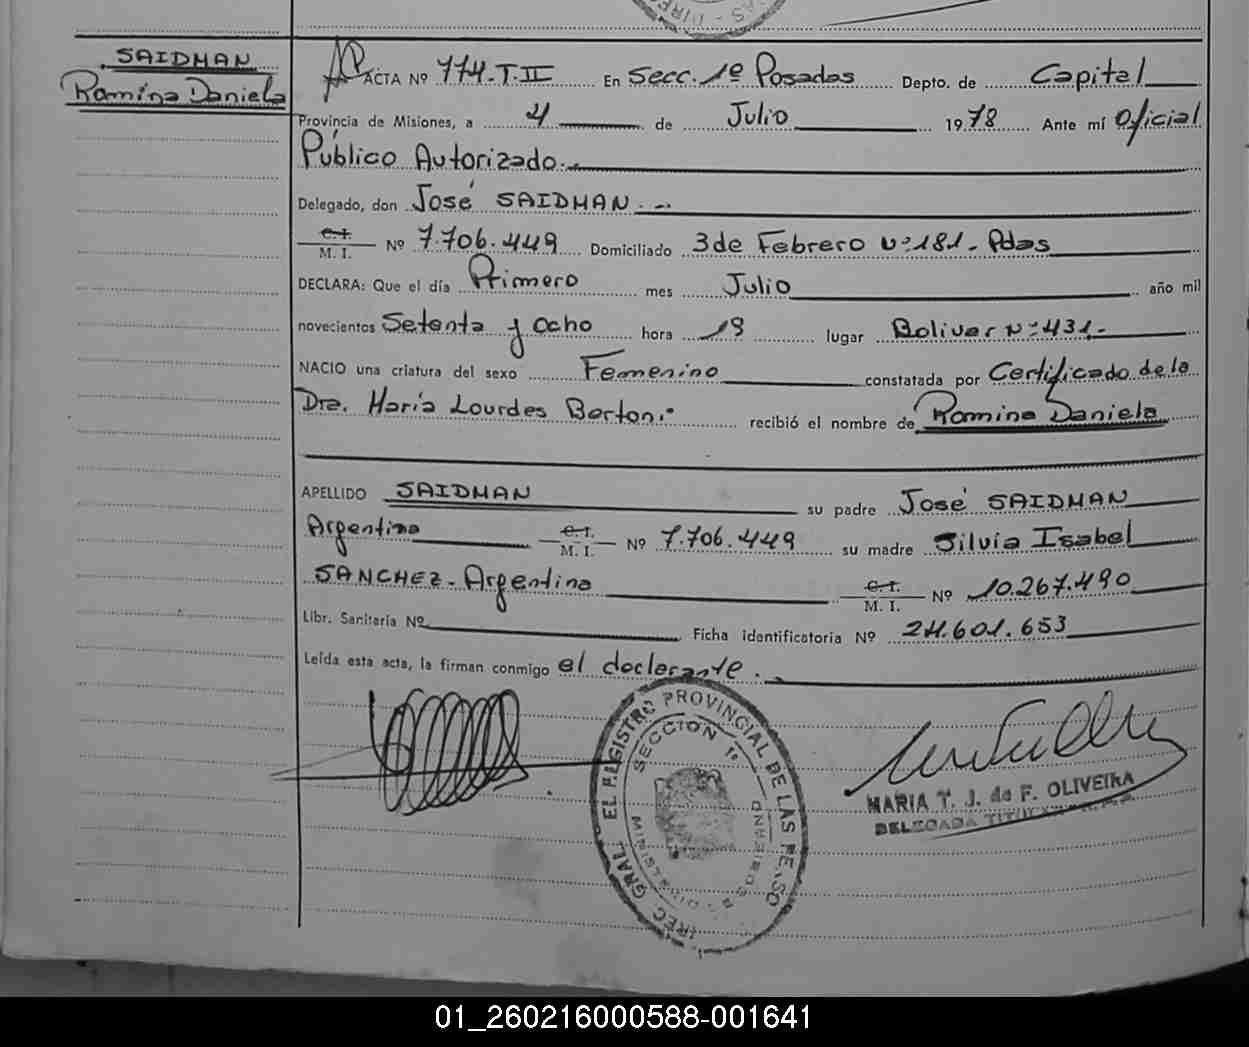 SAIDMAN
Romina Daniela
ACTA Nº 774-T-II En Secc. 1º Posadas Depto. de Capital
Provincia de Misiones, a 4 de Julio 1978 Ante mí Oficial
Público Autorizado.
Delegado, don José SAIDMAN.
C. I.
M. I. Nº 7.706.449 Domiciliado 3 de Febrero Nº 181 - Pdas
DECLARA: Que el día Primero mes Julio año mil
novecientos Setenta y ocho hora 19 lugar Bolivar Nº 431.-
NACIO una criatura del sexo Femenino constatada por Certificado de la
Dra. María Lourdes Bertoni recibió el nombre de Romina Daniela
APELLIDO SAIDMAN su padre José SAIDMAN
Argentino C. I. M. I. Nº 7.706.449 su madre Silvia Isabel
SANCHEZ - Argentina C. I. M. I. Nº 10.267.490
Libr. Sanitaria Nº Ficha identificatoria Nº 24.601.653
Leída esta acta, la firman conmigo el declarante.
EL REGISTRO PROVINCIAL DE LAS PERSO
GRAL.
SECCION 1a
MARIA T. J. de F. OLIVEIRA
DELEGADA TITULAR
01_260216000588-001641